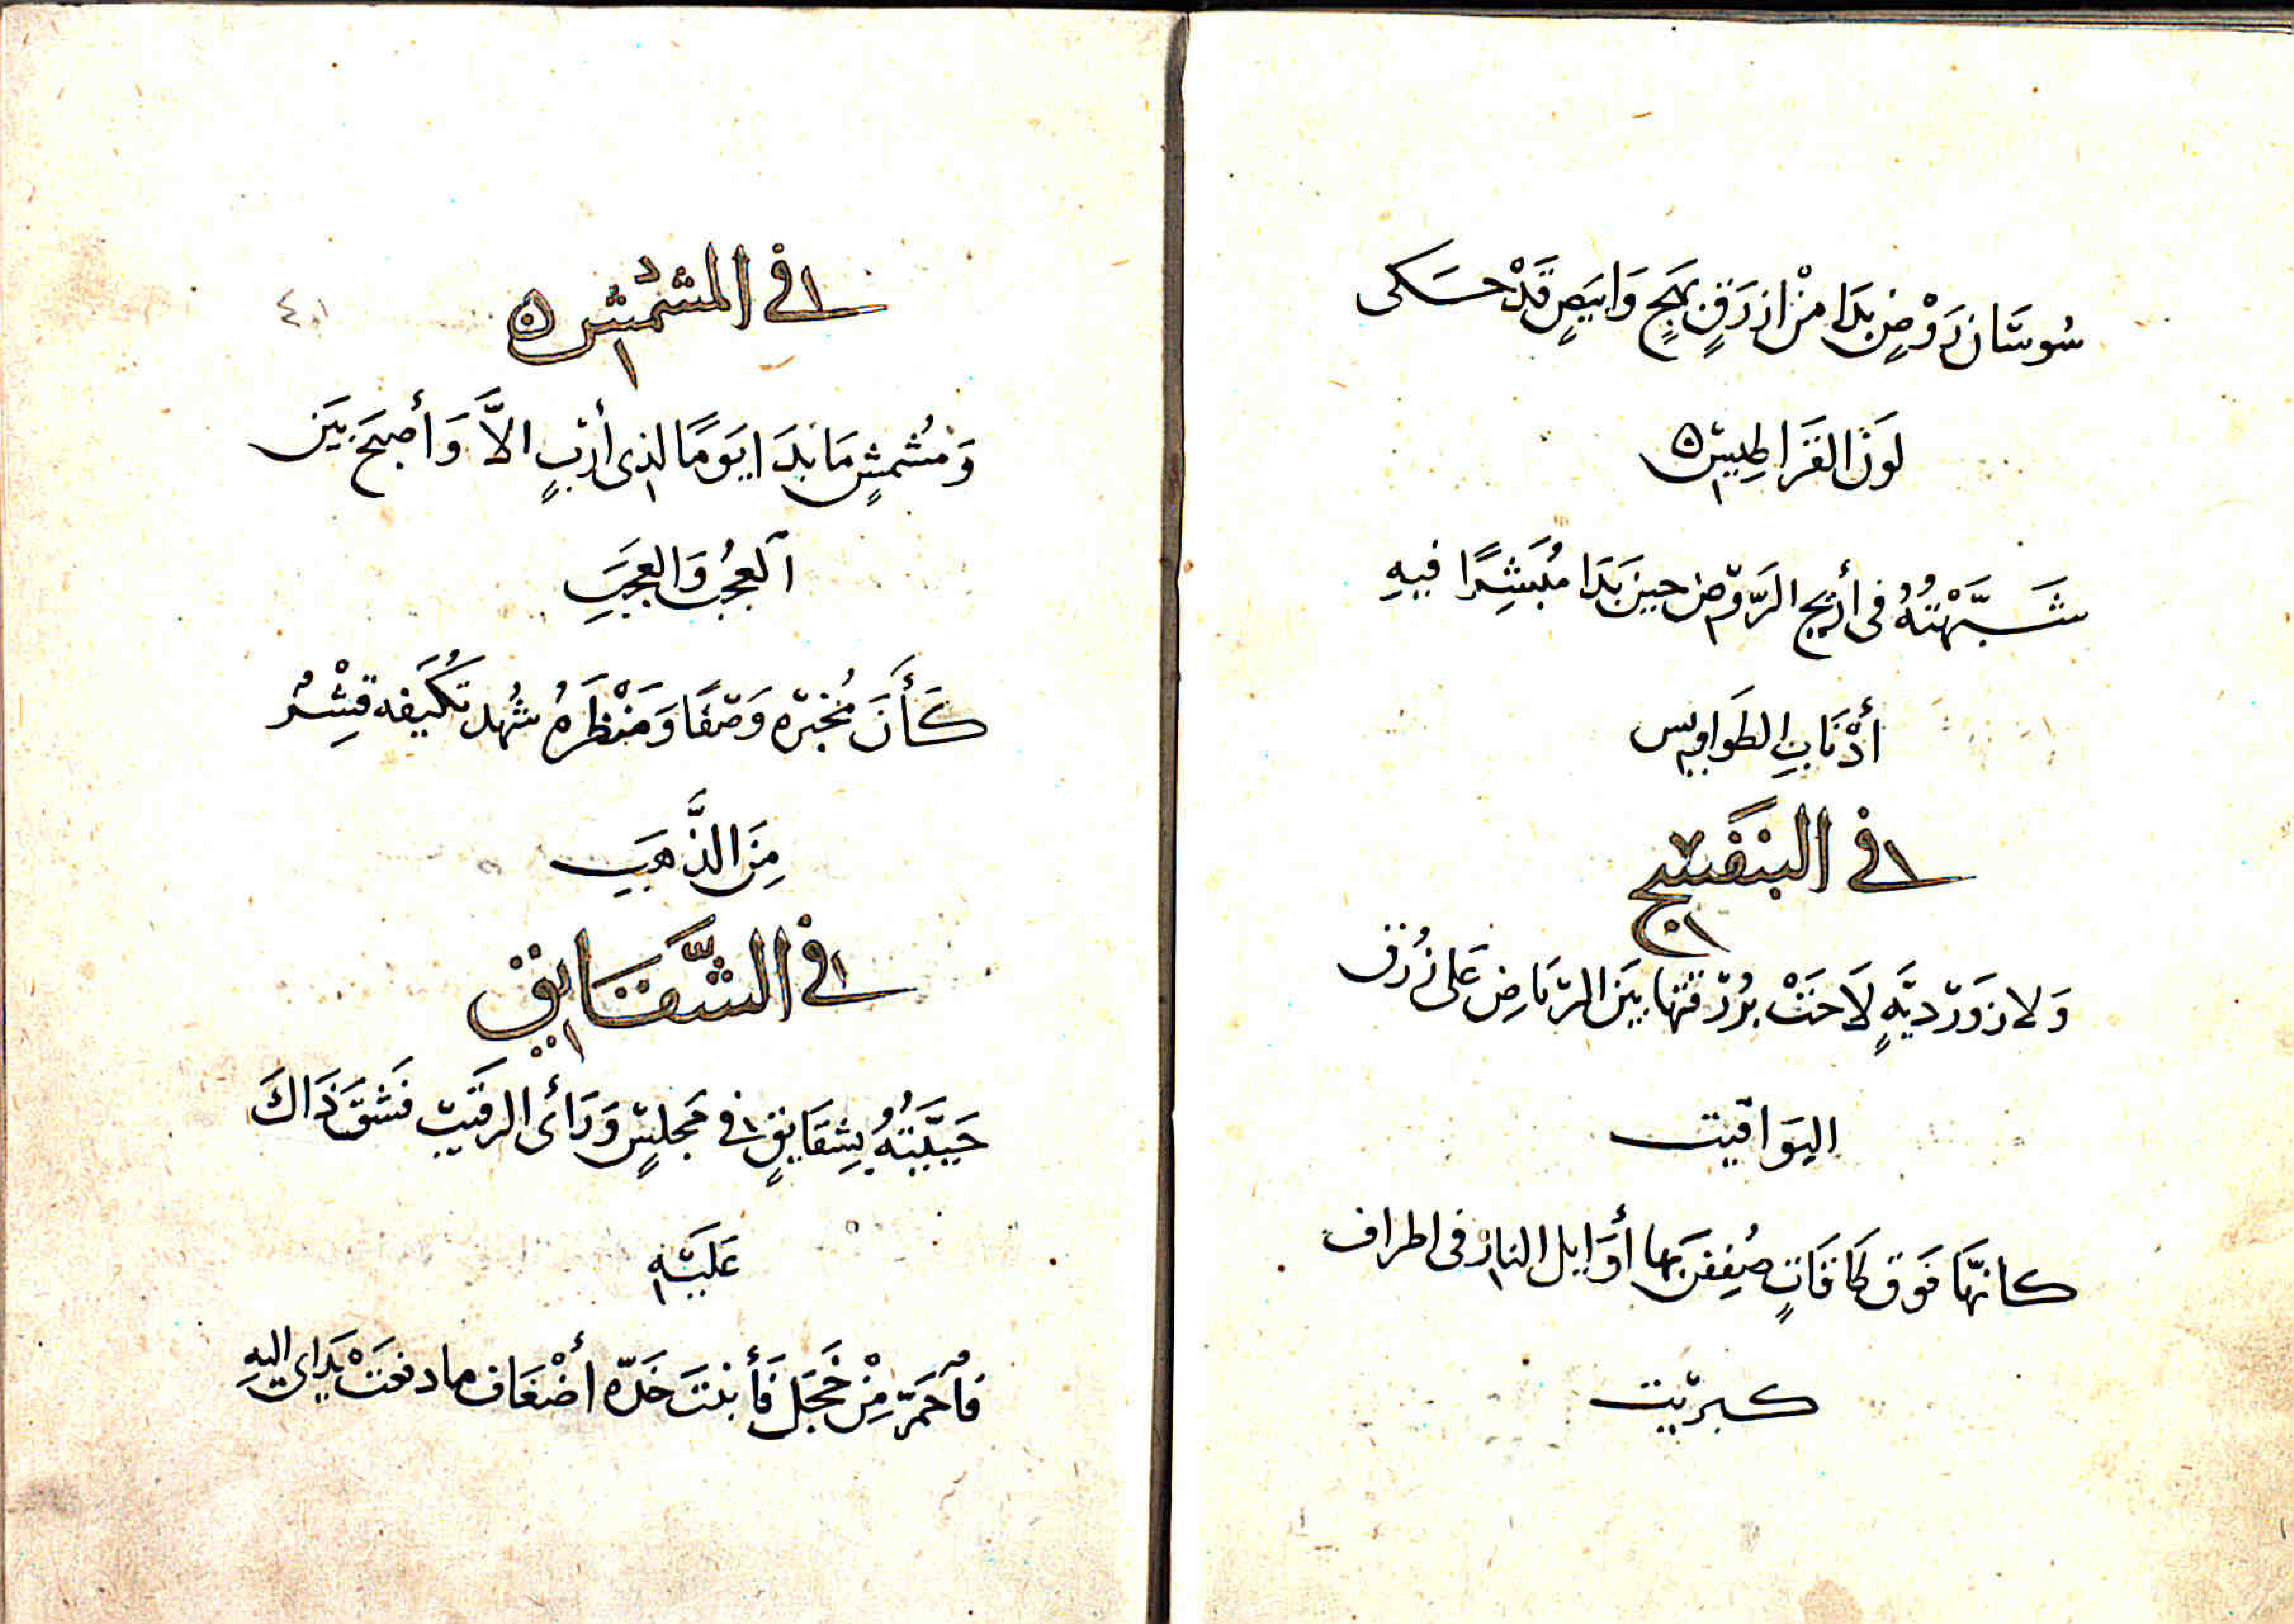 سُوسَان رَوْضٍ بَدَا مِنْ ازرَقٍ بَهِجٍ وَابيَضٍ قَدْ حَكى
لَوْنَ القَرَاطِيسِ
شَبَّهْتُهُ فى أريج الرَّوْض حِين بَدَا مُبَشِرًا فيهِ
أذْنَابِ الطَوَاوِيسِ
فى البَنَفْسَج
وَلازوَرْديَّةٍ لَاحَتْ بزُرْقتها بَيْنَ الرّيَاضِ عَلى زُرْقِ
اليَوَاقيت
كانهَّا فَوْقَ طَاقَاتٍ ضعُفْنَ بِهَا أوَايل النار فى اطراف
كبريْت
فى المشْمُش
٤٠١
وَمُشْمشٍ مَا بَدَا يَوْمًا لِذى أَرَبٍ الاَّ وَأصبَحَ بَيْنَ
ٱلعجُبِ وَالعجَبِ
كَأَنَ مُخْبَرَه وَصْفًا وَمَنْظَرَهُ شُهد تكَنفه قِشْرُ
مِنَ الذَّهَبِ
فى الشَّقَايق
حَيَّيْتُهُ بِشقَايقٍ فى مَجلسٍ وَرَأى الرقيْب فَشَقَّ ذَاكَ
عَلَيْهِ
فَٱحمَرَّ مِنْ خَجَل فَأنبتَ خَدّه أضْعَاف ما دفعَتْ يَداى اليهِ